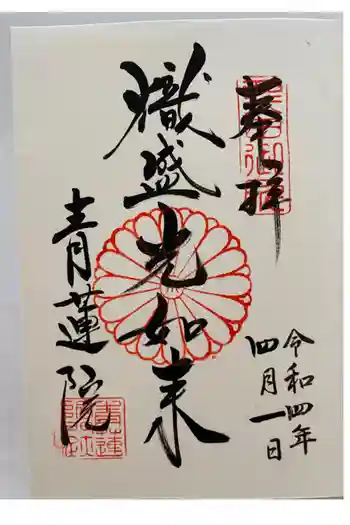 奉拝
令和四年
四月一日
熾盛光如来
青蓮院